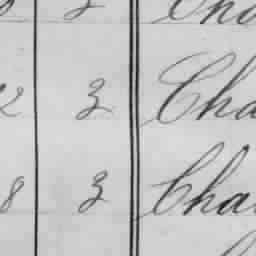 2 3 Cha
8 3 Cha